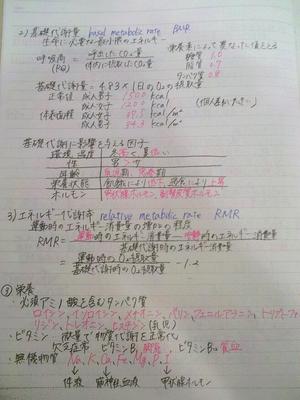 2) 基礎代謝量 basal metabolic rate BMR
生命に必要な最小限のエネルギー
呼吸商 = 呼出したCO₂量
(RQ) 体内に取り入れたO₂量
栄養素によって異なった値になる
糖質 1.0
脂質 0.7
タンパク質 0.8
基礎代謝量 = 4.83 × 1日のO₂の
正常値 成人男子 1500 kcal
成人女子 1200 kcal
体表面積 成人男子 37.5 kcal/m²
成人女子 34.3 kcal/m²
基礎代謝に影響を与える因子
環境温度 冬 夏
性 男 > 女
年齢
栄養状態
ホルモン 甲状腺ホルモン, 副腎皮質ホルモン
3) エネルギー代謝率 relative metabolic rate RMR
運動時のエネルギー消費量の増加の程度
RMR = 運動時のエネルギー消費量 - 安静時のエネルギー消費量
基礎代謝時のエネルギー消費量
= 運動時のO₂消費量
基礎代謝時のO₂消費量 - 1.2
③ 栄養
必須アミノ酸を含むタンパク質
ロイシン, イソロイシン, メチオニン, バリン, フェニルアラニン, トリプトファン
リジン, トレオニン, ヒスチジン(乳児)
・ビタミン 微量で物質代謝を正常化
欠乏症 ビタミンB₁ 脚気 ビタミン 貧血
・無機物質 Na, K, Ca, Fe, Mg, P, I
体液 血液 甲状腺ホルモン